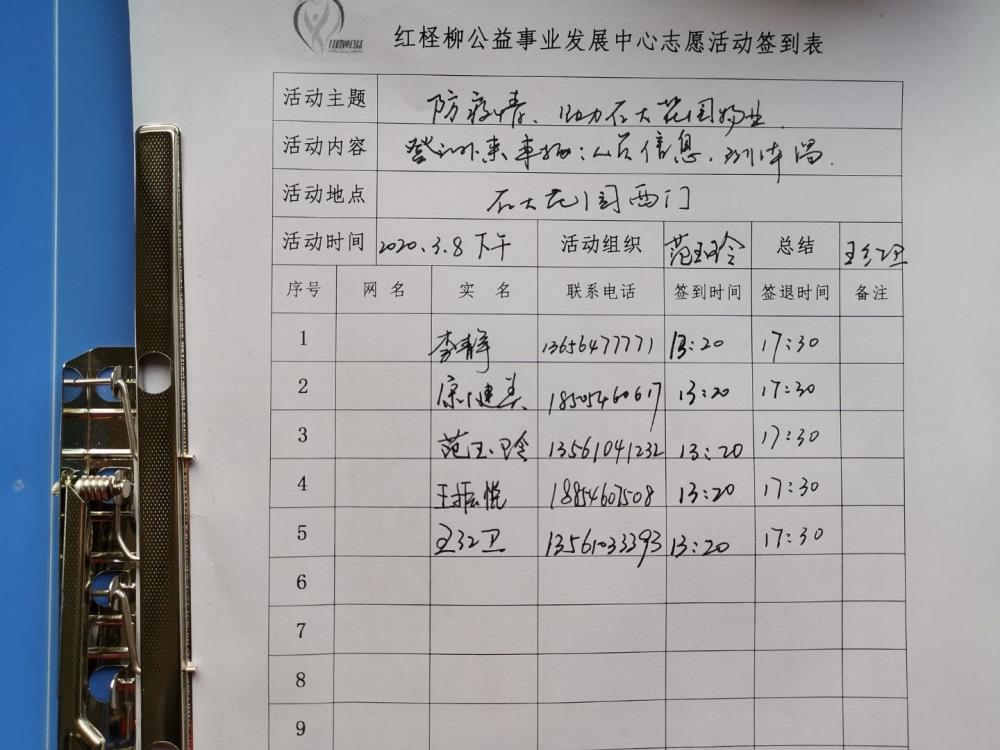 红柽柳公益事业发展中心志愿活动签到表
活动主题 防疫情、助力石大花园物业
活动内容 登记外来车辆:人员信息.测体温.
活动地点 石大花园西门
活动时间 2020.3.8下午 活动组织 范玉玲 总结 王红卫
序号 网名 实名 联系电话 签到时间 签退时间 备注
1 李静 13656477771 13:20 17:30
2 康健美 18505460617 13:20 17:30
3 范玉玲 13561041232 13:20 17:30
4 王振悦 18854607508 13:20 17:30
5 王红卫 13561033393 13:20 17:30
6
7
8
9